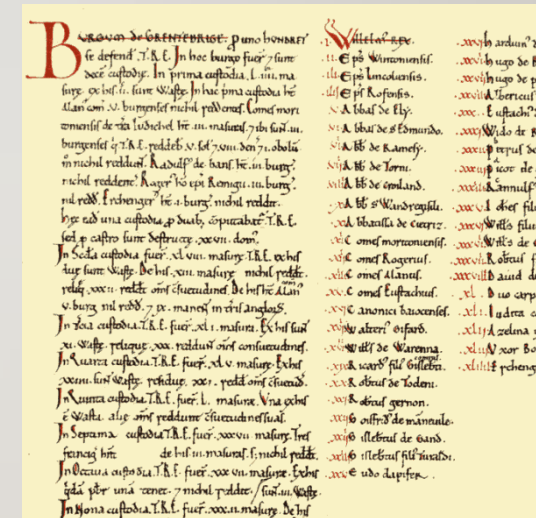 Burgum de Grentebrige. p uno hundret
se defend. T.R.E. In hoc burgo fuer 7 sunt
dece custodie. In prima custodia. L.iiii. ma
sure. ex his .ii. sunt Waste. In hac pma custodia ht
Alan com .v. burgenses nichil reddentes. Comes mori
toniensis de tra Iudichel ht .iii. masuras. 7 ibi sunt .iii.
burgenses q T.R.E. reddeb .v. sol 7 viii. den 7 .i. obolu
m nichil reddunt. Radulf de bans. ht .iii. burg.
nichil reddentes. Roger ho epi Remigii .iii. burg.
nil redd. Erchenger ht .i. burg. nichil reddit.
hec ead una custodia p duab coputabat T.R.E.
sed p castro sunt destructe .xxvii. dom.
In Scda custodia fuer .xl viii. masure. T.R.E. ex his
due sunt Waste. De his .xiii. masure nichil reddt.
reliq .xxxii. reddt oms csuetudines. De his ht Alan
v. burg nil redd. 7 ix. manent in tris anglor.
In Tcia custodia. T.R.E. fuer .xl i. masura. Ex his sunt
xi. Waste. relique .xxx. reddunt oms consuetudines.
In Quarta custodia. T.R.E. fuer .xl v. masure. Ex his
xxiiii. sunt Waste. relidue. xxi. reddt oms csuetud.
In Quinta custodia. T.R.E. fuer .L. masure. Una ex his
e Wasta. alie oms reddunt csuetudines suas.
In Septima custodia T.R.E. fuer .xxxvii masure. Tres
francig ht de his .iii. masuras. s nichil reddt.
In Octava custodia. T.R.E. fuer .xxx vii. masure. Ex his
qda pbr una tenet. 7 nichil reddit.
In Nona custodia. T.R.E. fuer .xxx.ii masure. De his
.i. Willelmus rex.
.ii. Eps Wintoniensis.
.iii. Eps lincoliensis.
.iiii. Eps Rofensis.
.v. Abbas de Ely.
.vi. Abbas de S Edmundo.
.vii. Abb de Ramesy.
.viii. Abb de Torni.
.ix. Abb de croiland.
.x. Abb S Wandregisili.
.xi. Abbatissa de Cietriz.
.xii. Comes moritoniensis.
.xiii. Comes Rogerius.
.xiiii. Comes Alanus.
.xv. Comes Eustachius.
.xvi. Canonici baiocenses.
.xvii. Walteri Gifard.
.xviii. Wills de Warenna.
.xix. Ricard fili Gisleberti.
.xx. Robtus de Todeni.
.xxi. Robtus gernon.
.xxii. Goisfrid de manneuile.
.xxiii. Gislebtus de Gand.
.xxiiii. Gislebtus fili Turaldi.
.xxv. Eudo dapifer.
harduin
hugo de
hugo de
Albericus
Eustachi
Wido de
Petrus de
Picot de
Rannulf
Iohes filiu
Wills filiu
Wills de
Robtus f
David d
Duo carp
Iudita c
Azelina
Uxor Bo
Erchenge